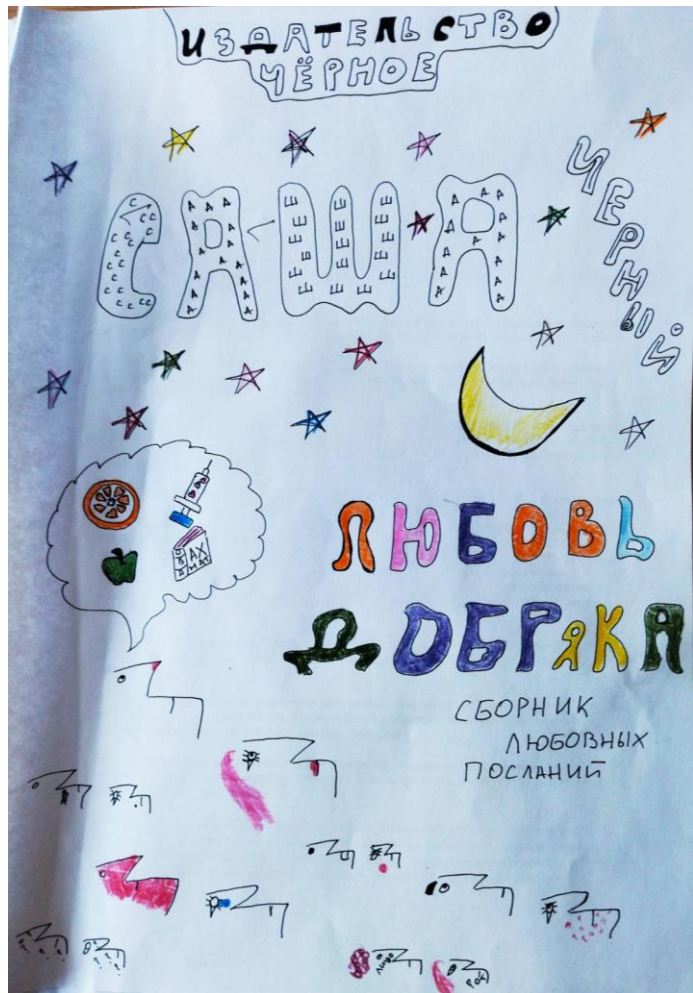 ИЗДАТЕЛЬСТВО
ЧЁРНОЕ
САША
ЧЕРНЫЙ
АХ
МАТ
ЛЮБОВЬ
ДОБРЯКА
СБОРНИК
ЛЮБОВНЫХ
ПОСЛАНИЙ
РОК